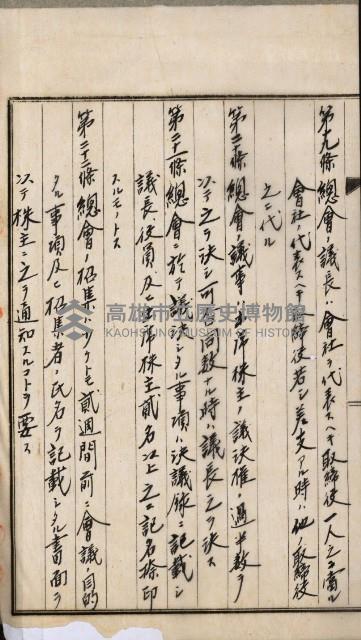 第十九條 總會ノ議長ハ會社ヲ代表スヘキ取締役一人之ニ當ル
會社ヲ代表スヘキ取締役若シ差支アル時ハ他ノ取締役
之ニ代ル
第二十條 總會ノ議事ハ出席株主ノ議決權ノ過半數ヲ
以テ之ヲ決シ可否同數ナル時ハ議長之ヲ決ス
第二十一條 總會ニ於テ議決シタル事項ハ決議錄ニ記載シ
議長、役員及ヒ出席株主貳名以上之ニ記名捺印
スルモノトス
第二十二條 總會ノ招集ハ少クトモ貳週間前ニ會議ノ目的
タル事項及ヒ招集者ノ氏名ヲ記載シタル書面ヲ
以テ株主ニ之ヲ通知スルコトヲ要ス
高雄市立歷史博物館
KAOHSIUNG MUSEUM OF HISTORY